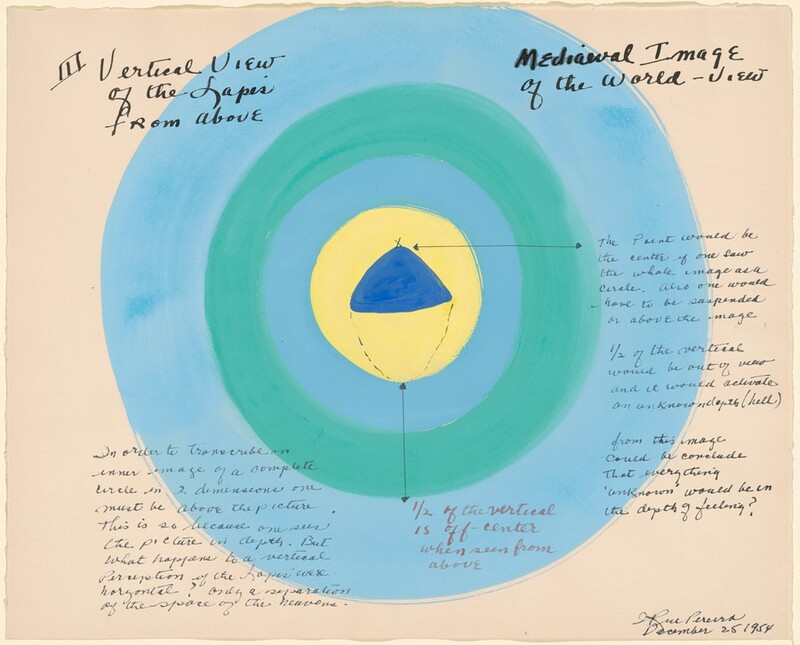 III Vertical View
of the Lapis
from above
Mediaeval Image
of the World - View
The Point would be
the center if one saw
the whole image as a
circle. Also one would
have to be suspended
or above the image
1/2 of the vertical
would be out of view
and it would activate
an unknown depth (hell)
from this image
could be conclude
that everything
'unknown' would be in
the depth of feeling?
In order to transcribe an
inner image of a complete
circle in 2 dimensions one
must be above the picture.
This is so because one sees
the picture in depth. But
what happens to a vertical
Perception if the Lapis were
horyontal? Only a separation
of the space of the heavens.
1/2 of the vertical
is off-center
when seen from
above
X
I Rice Pereira
December 25 1954